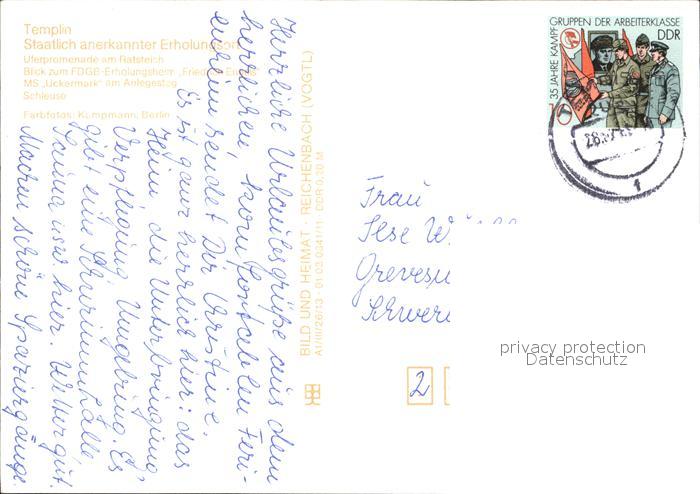 Templin
Staatlich anerkannter Erholungsort
Uferpromenade am Ratsteich
Blick zum FDGB-Erholungsheim „Friedrich Engels"
MS „Uckermark" am Anlegesteg
Schleuse
Farbfotos: Kümpmann, Berlin
Herrliche Urlaubsgrüße aus dem
herrlichen, komfortablen Feri-
enheim sendet Dir Christine.
Es ist ganz herrlich hier: das
Heim die Unterbringung
Verpflegung Umgebung. Es
gibt eine Schwimmhalle
Sauna usw hier. Wetter gut.
Machen schöne Spaziergänge.
BILD UND HEIMAT · REICHENBACH (VOGTL)
A1/III/26/13 · 01 03 0341/11 DDR 0,20 M
35 JAHRE KAMPFGRUPPEN DER ARBEITERKLASSE
DDR
10
Frau
Ilse W
Grevesm
Schweri
2
privacy protection
Datenschutz